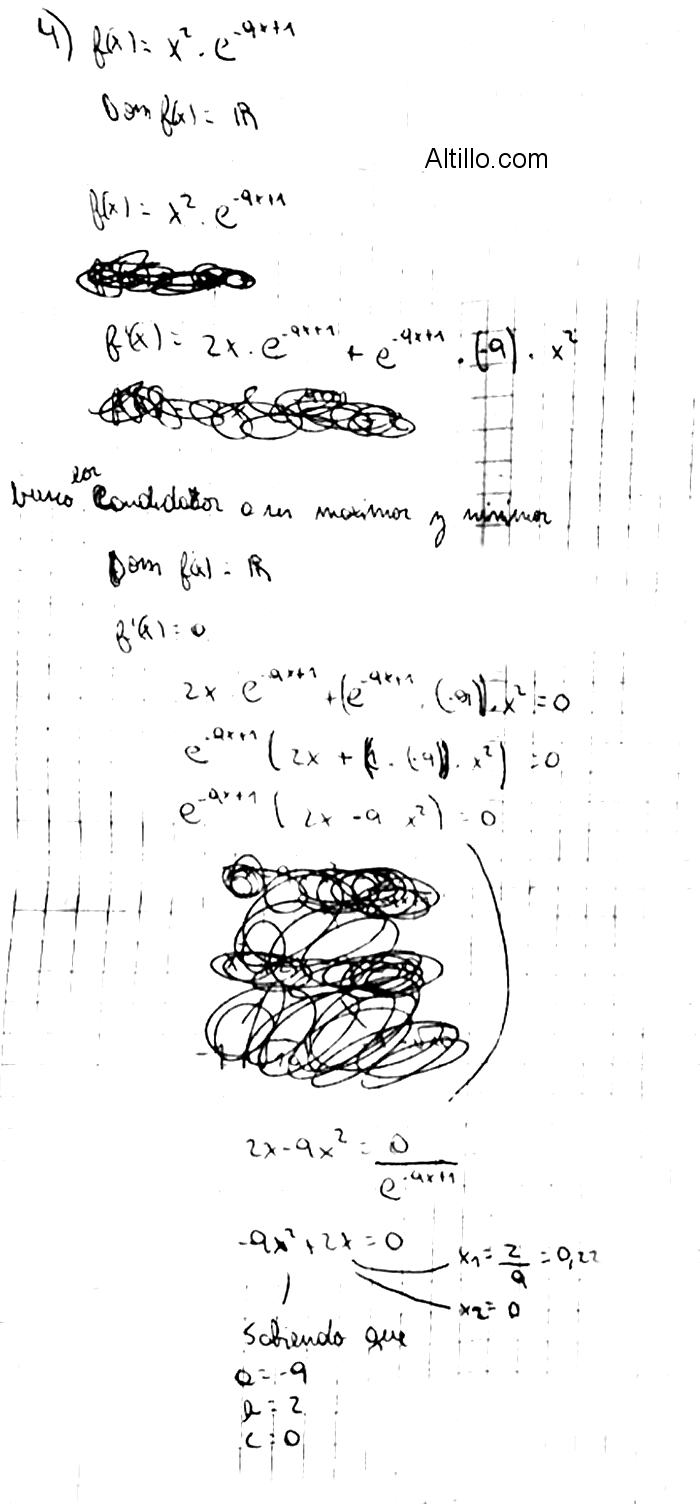 4) f(x) = x² . e^(-9x+1)
Dom f(x) = ℝ
Altillo.com
f(x) = x² . e^(-9x+1)
f'(x) = 2x . e^(-9x+1) + e^(-9x+1) . (-9) . x²
busco los candidatos a ser maximos y minimos
Dom f(x) = ℝ
f'(x) = 0
2x e^(-9x+1) + (e^(-9x+1) . (-9)) . x² = 0
e^(-9x+1) ( 2x + (1 . (-9)) . x² ) = 0
e^(-9x+1) ( 2x -9 x² ) = 0
2x - 9x² = 0 / e^(-9x+1)
-9x² + 2x = 0
x1 = 2/9 = 0,22
x2 = 0
Sabiendo que
a = -9
b = 2
c = 0